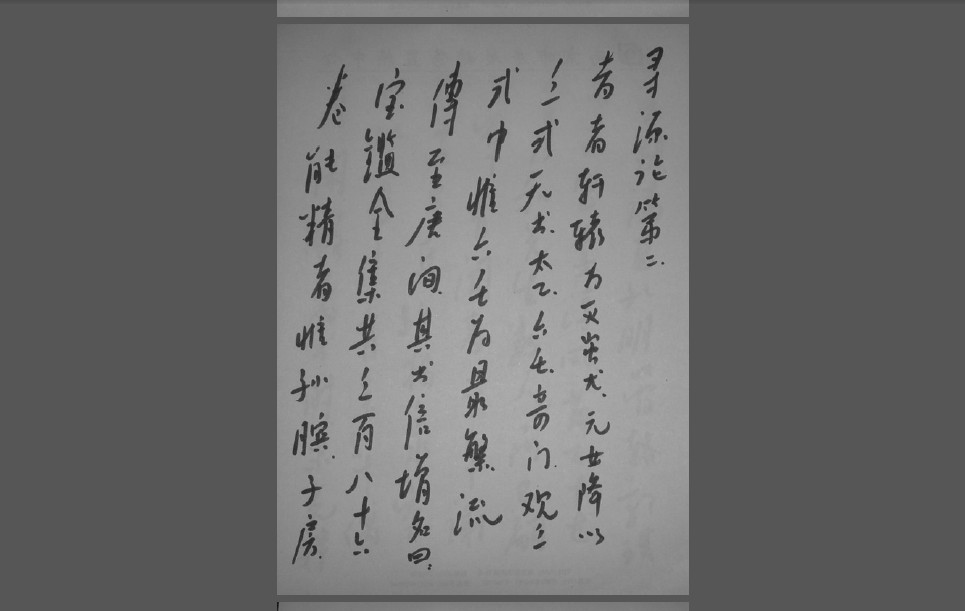 寻源论第二.
昔者轩辕为灭蚩尤.元女降以
三式天书.太乙.六壬.奇门.观三
式中惟六壬为最繁.流
傳至唐间.其书倍增名曰:
宝鑑全集共三百八十六
卷能精者惟孙膑.子房.